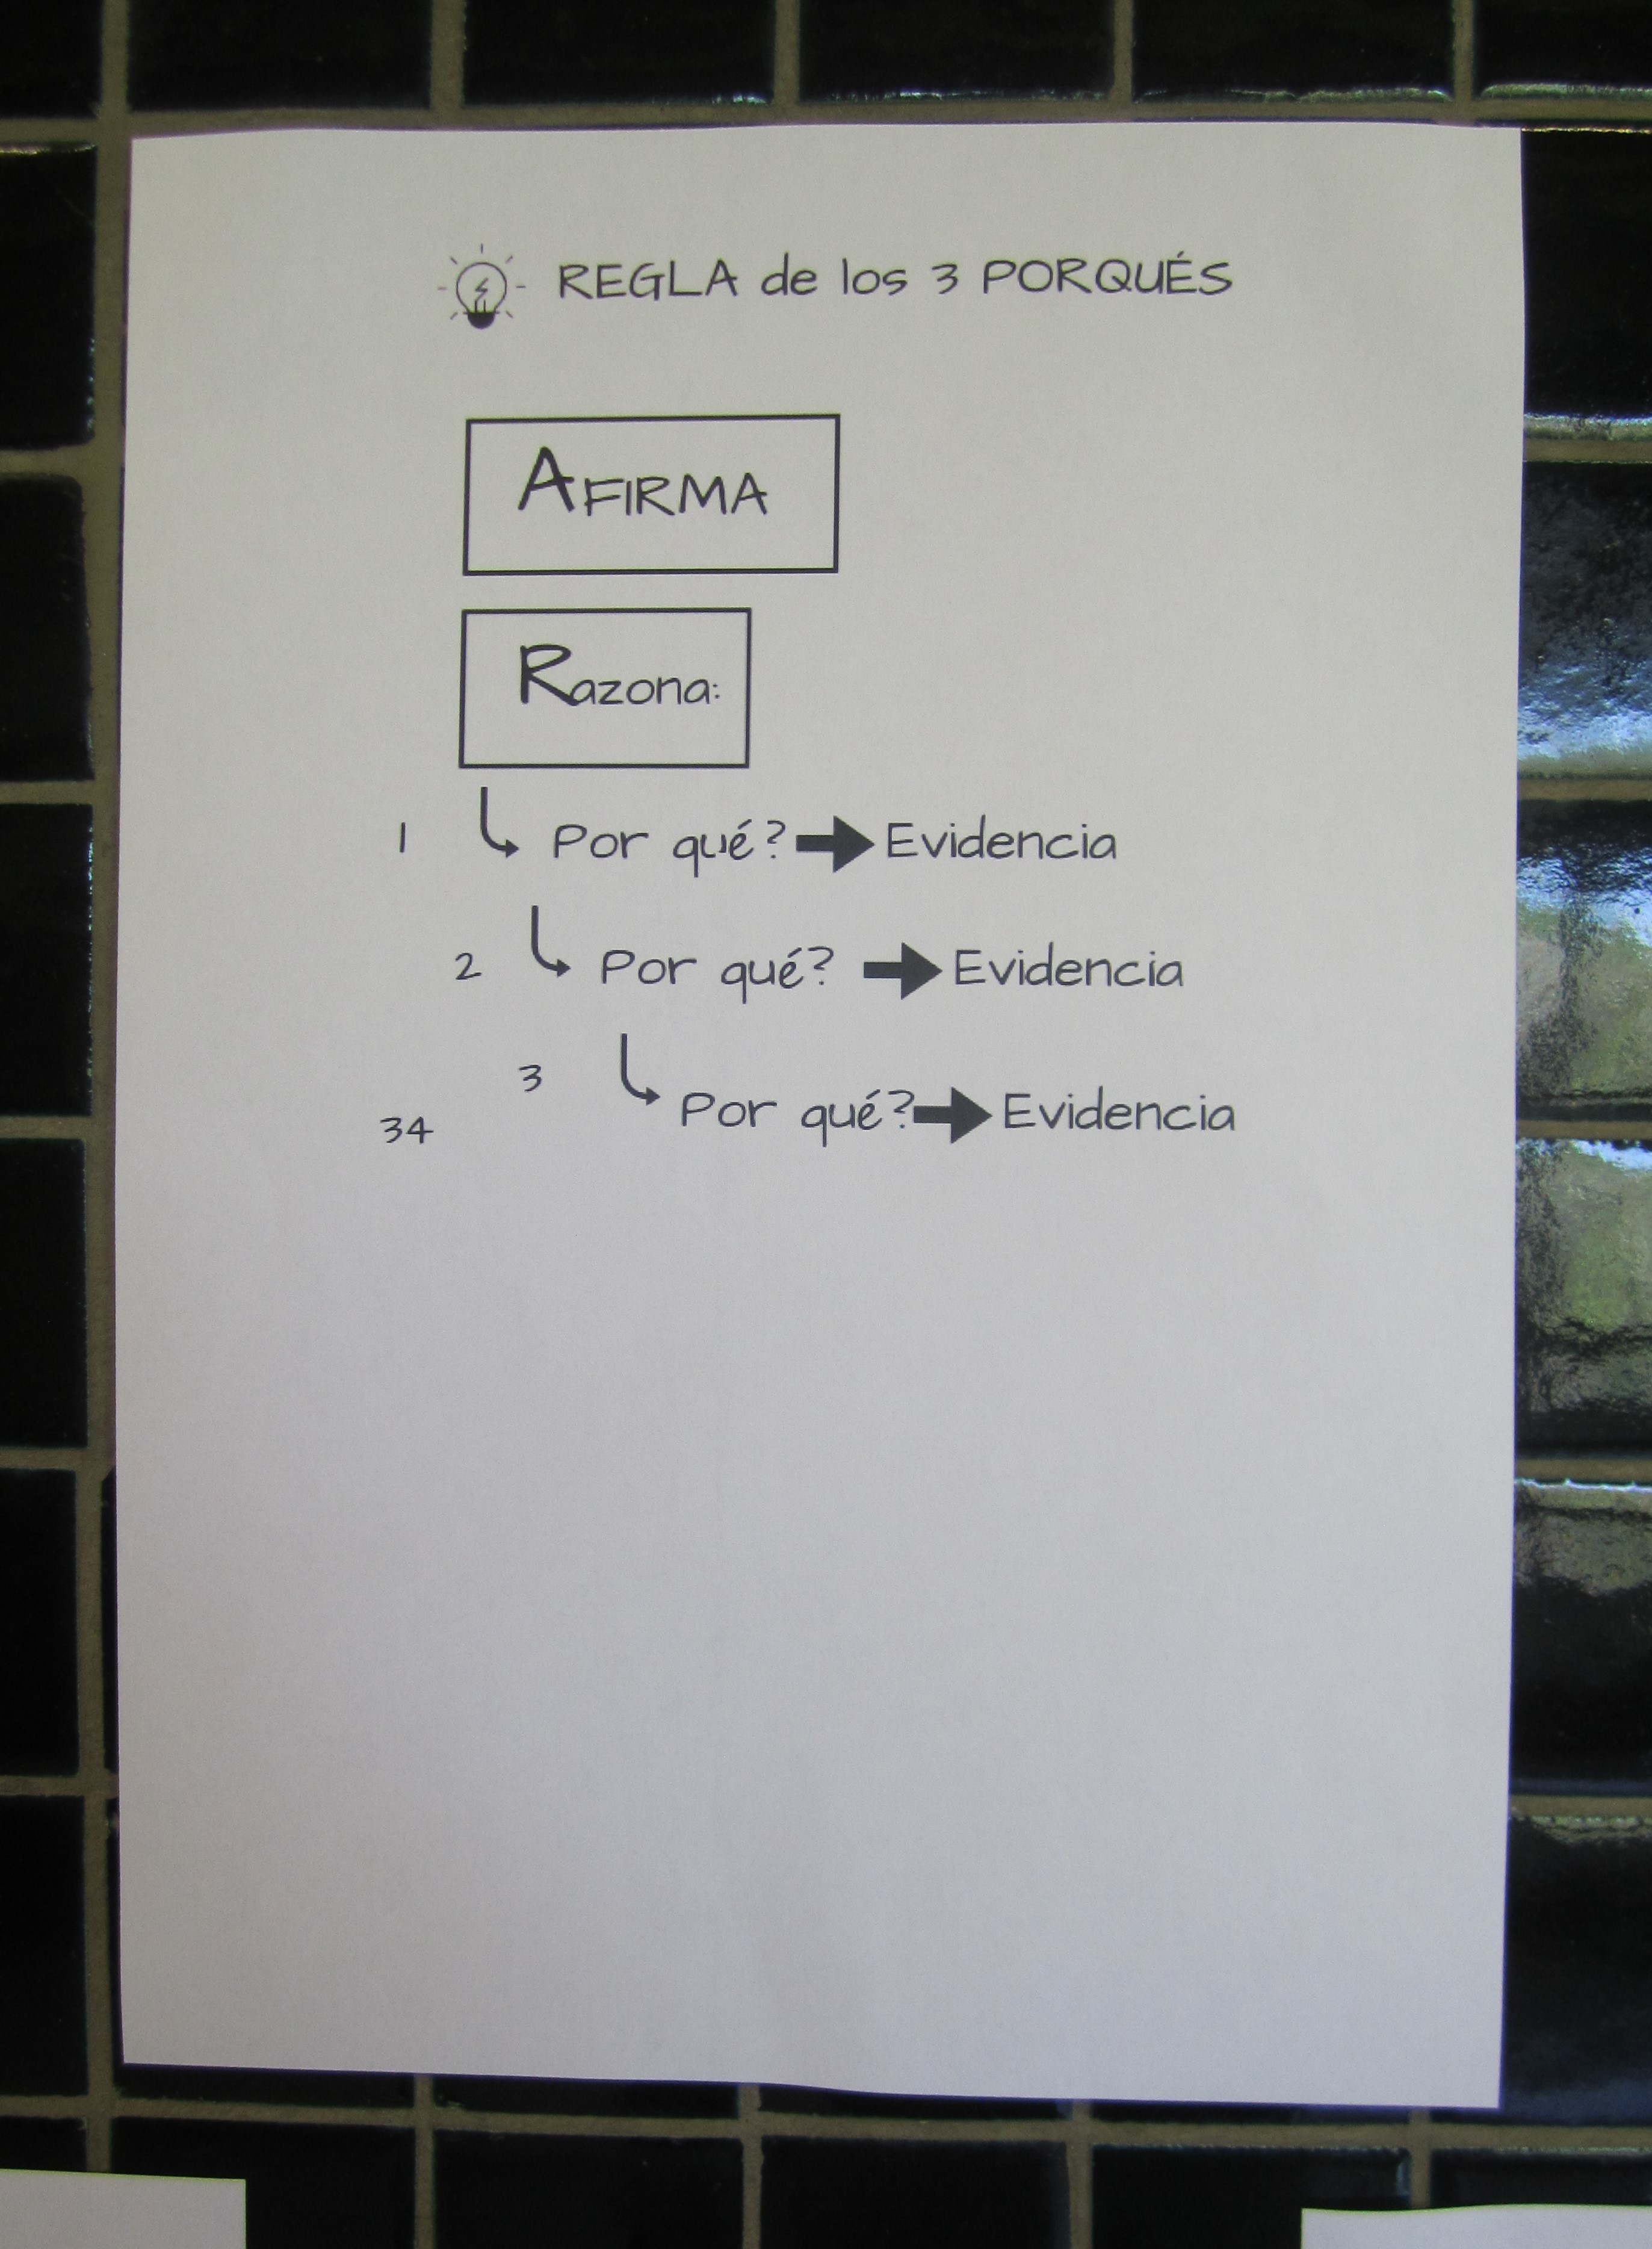 REGLA de los 3 PORQUÉS
AFIRMA
Razona:
1 Por qué? Evidencia
2 Por qué? Evidencia
3 Por qué? Evidencia
34